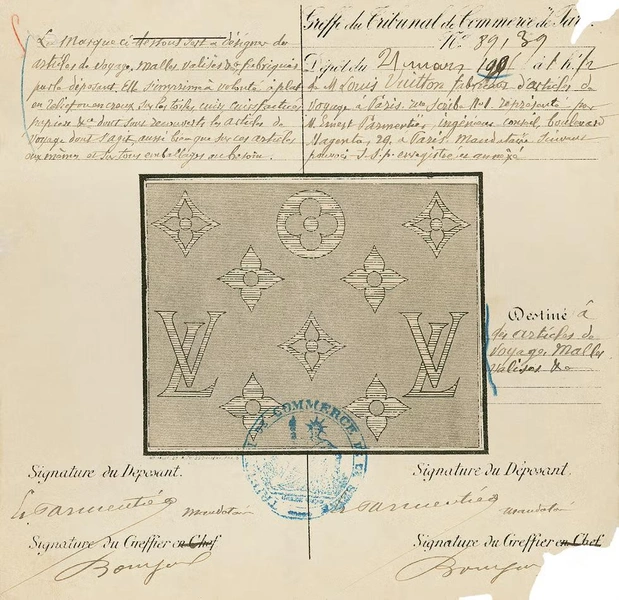 La Marque ci-dessous sert à désigner des
articles de voyage, malles valises &c fabriqués
par le déposant. Elle s'imprime à volonté à plat
en relief ou en creux sur les toiles, cuirs, cuirs factices
papiers &c dont sont recouverts les articles de
voyage dont s'agit, aussi bien que sur ces articles
eux mêmes et sur tous emballages au besoin.
Greffe du Tribunal de Commerce de Par
No. 89139
Dépôt du 21 mars à
de M. Louis Vuitton fabricant d'articles de
voyage à Paris rue Scribe No 1. représenté par
M. Ernest Parmentier, ingénieur conseil, boulevard
Magenta, 29, à Paris Mandataire suivant
pouvoir s.s.p. enregistré et annexé
LV
LV
Destiné à
des articles de
voyage, Malles
valises &c
TRIBUNAL DE COMMERCE DE LA SEINE
Signature du Déposant.
E. Parmentier mandataire
Signature du Greffier en Chef
Signature du Déposant.
E. Parmentier mandataire
Signature du Greffier en Chef